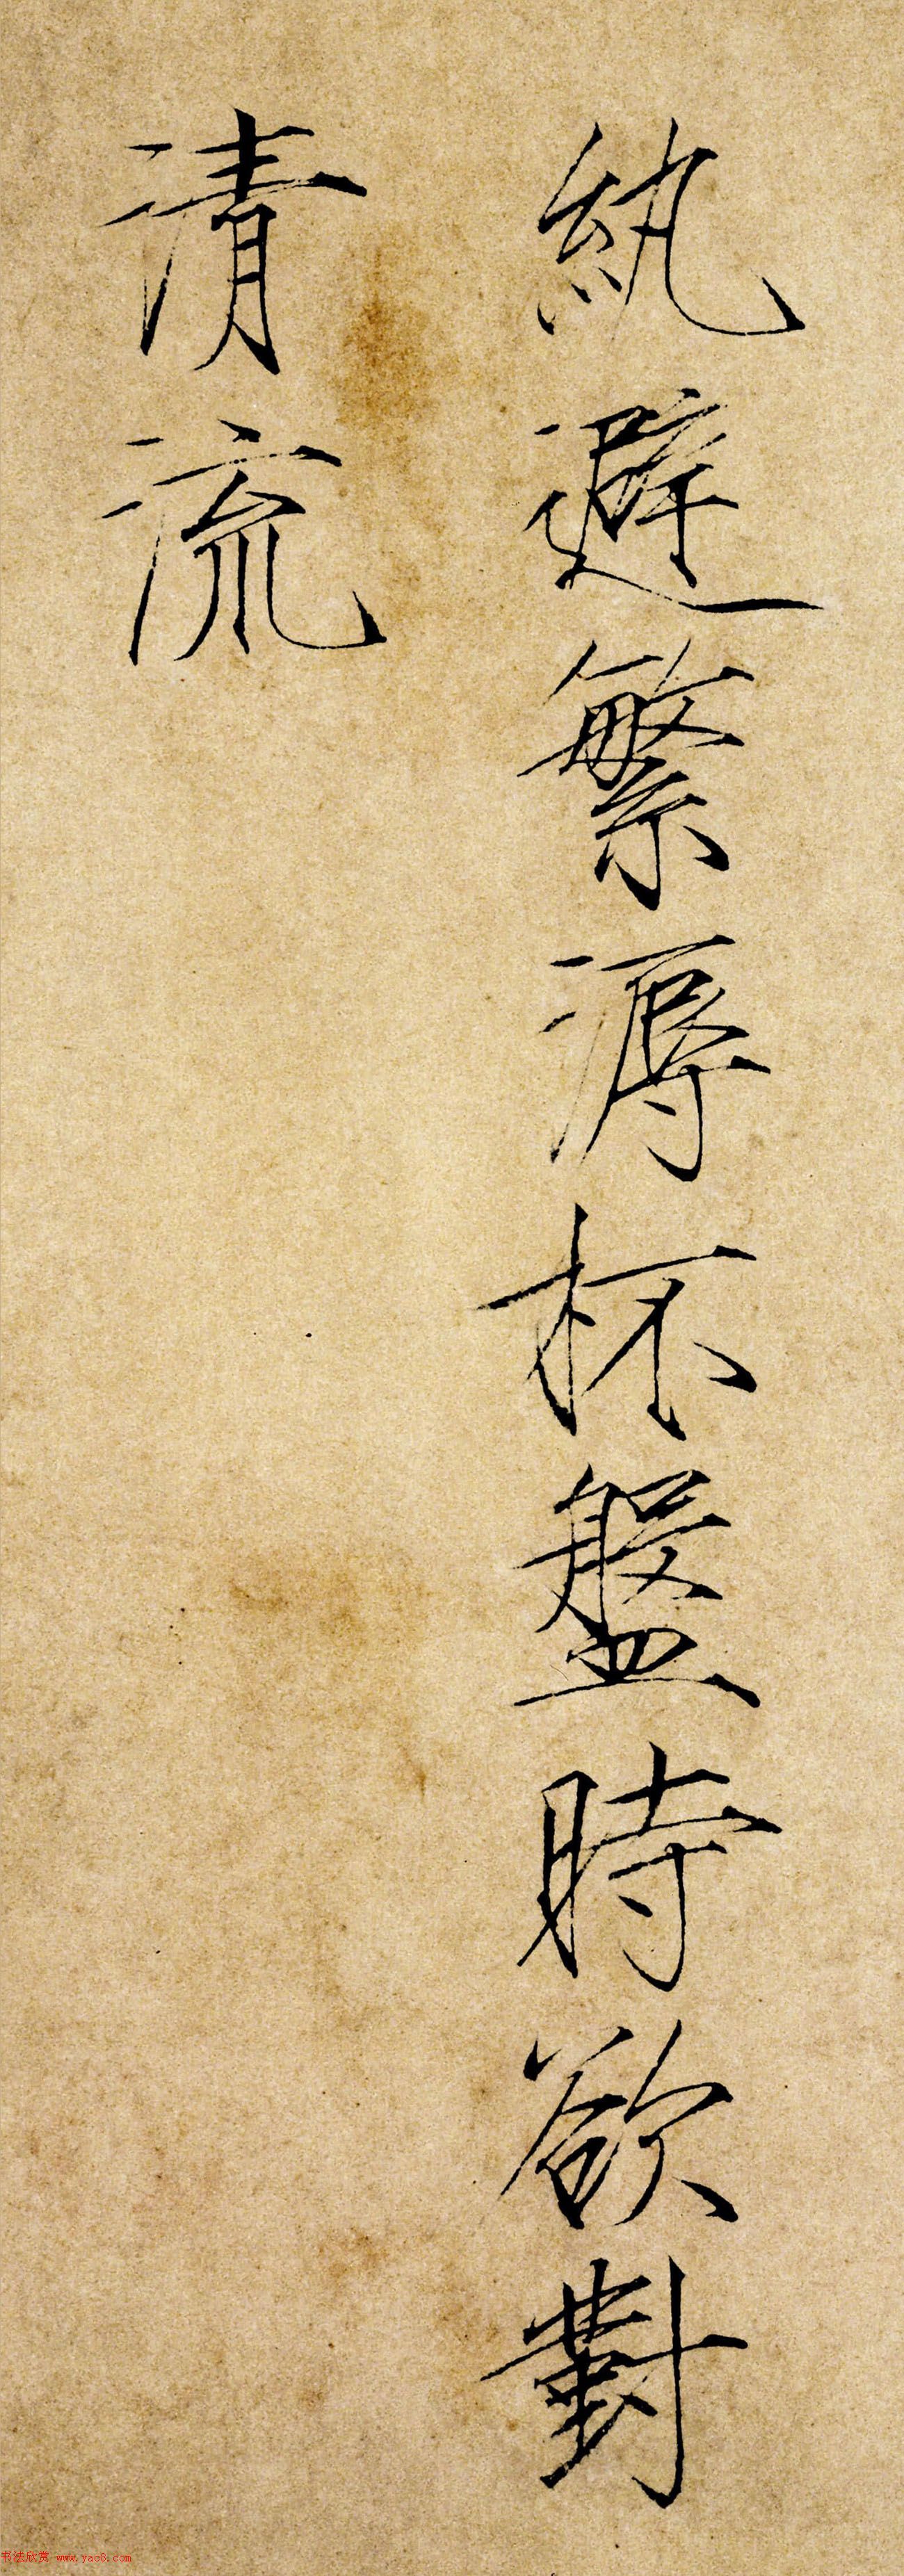 紈避繁溽杯盤時欲對
清流
书法欣赏 www.yac8.com